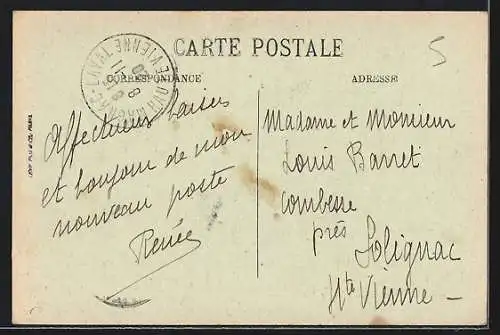 CARTE POSTALE
CORRESPONDANCE
ADRESSE
5
MAGNAC-LAVAL
HTE VIENNE
Affectueux baisers
et bonjour de mon
nouveau poste
Renée
Madame et Monsieur
Louis Barret
Combesse
près
Solignac
Hte Vienne